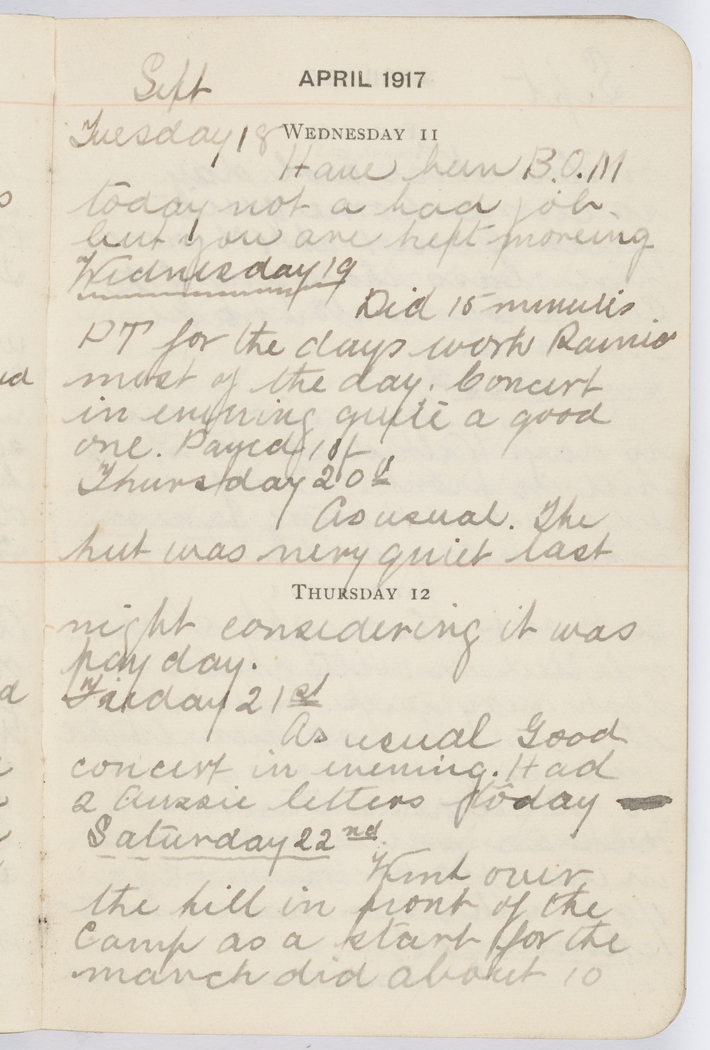 Sept
APRIL 1917
Tuesday 18 WEDNESDAY 11
Have been B.O.M
today not a bad job
but you are kept moveing
Wednesday 19
Did 15 minutes
PT for the days work Rained
most of the day. Concert
in evening quite a good
one. Payed 10/-
Thursday 20th
As usual. The
hut was very quiet last
THURSDAY 12
night considering it was
pay day.
Friday 21st
As usual Good
concert in evening. Had
2 Aussie letters today —
Saturday 22nd
Went over
the hill in front of the
camp as a start for the
march did about 10